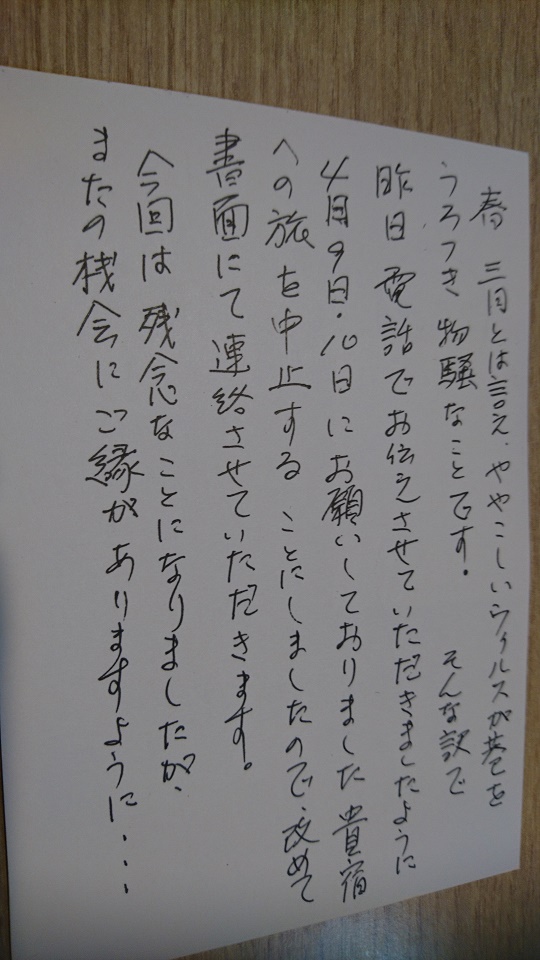 春 三月とは言え、ややこしいウィルスが巷を
うろつき物騒なことです。 そんな訳で
昨日 電話でお伝えさせていただきましたように
4月9日・10日にお願いしておりました貴宿
への旅を中止することにしましたので、改めて
書面にて連絡させていただきます。
今回は残念なことになりましたが、
またの機会にご縁がありますように・・・・